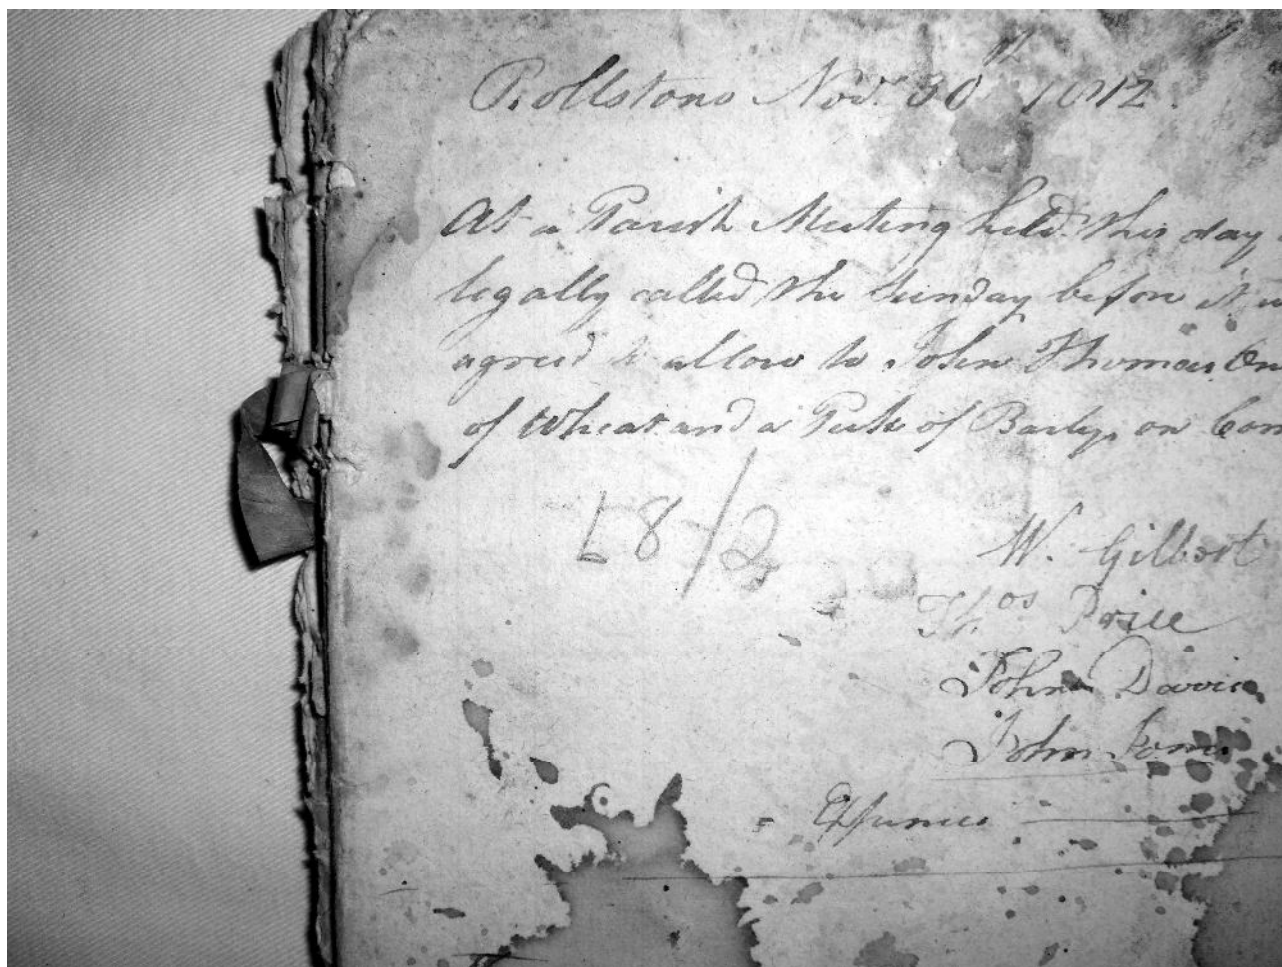 Rollstone Nov.r 30th 1812.
At a Parish Meeting held this day
legally called the Sunday before it
agreed to allow to John Thomas One
of Wheat and a Peck of Barly, on Com
L 8/2
W. Gilbert
Thos Price
John Davies
John Jones